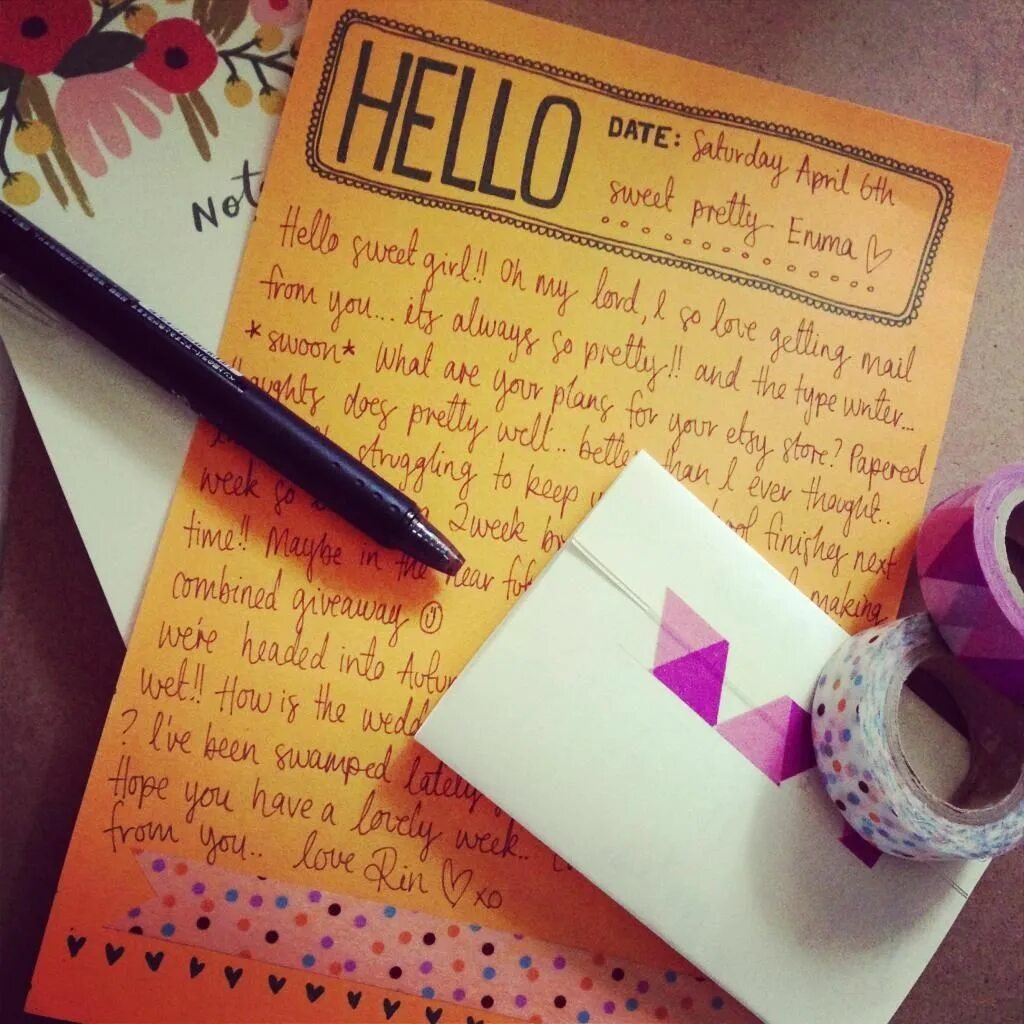 HELLO
DATE: Saturday April 6th
sweet pretty Emma
Hello sweet girl!! Oh my lord, I so love getting mail
from you... its always so pretty!! and the type writer...
*swoon* What are your plans for your etsy store? Papered
thoughts does pretty well.. better than I ever thought..
struggling to keep finishes next
week so 2week
time!! Maybe in the near making
combined giveaway
we're headed into
wet!! How is the
? I've been swamped lately
Hope you have a lovely week..
from you.. love Rin xo
Not